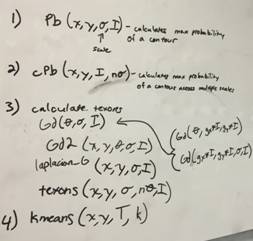 1) Pb (x,y,σ,I) - calculates max probability
of a contour
scale
2) cPb (x,y,I,nσ) - calculates max probability
of a contour across multiple scales
3) calculate texons
Gd(θ,σ,I)
Gd2 (x,y,θ,σ,I)
laplacian_G (x,y,σ,I)
texons (x,y,σ,nθ,I)
4) kmeans (x,y,T,k)